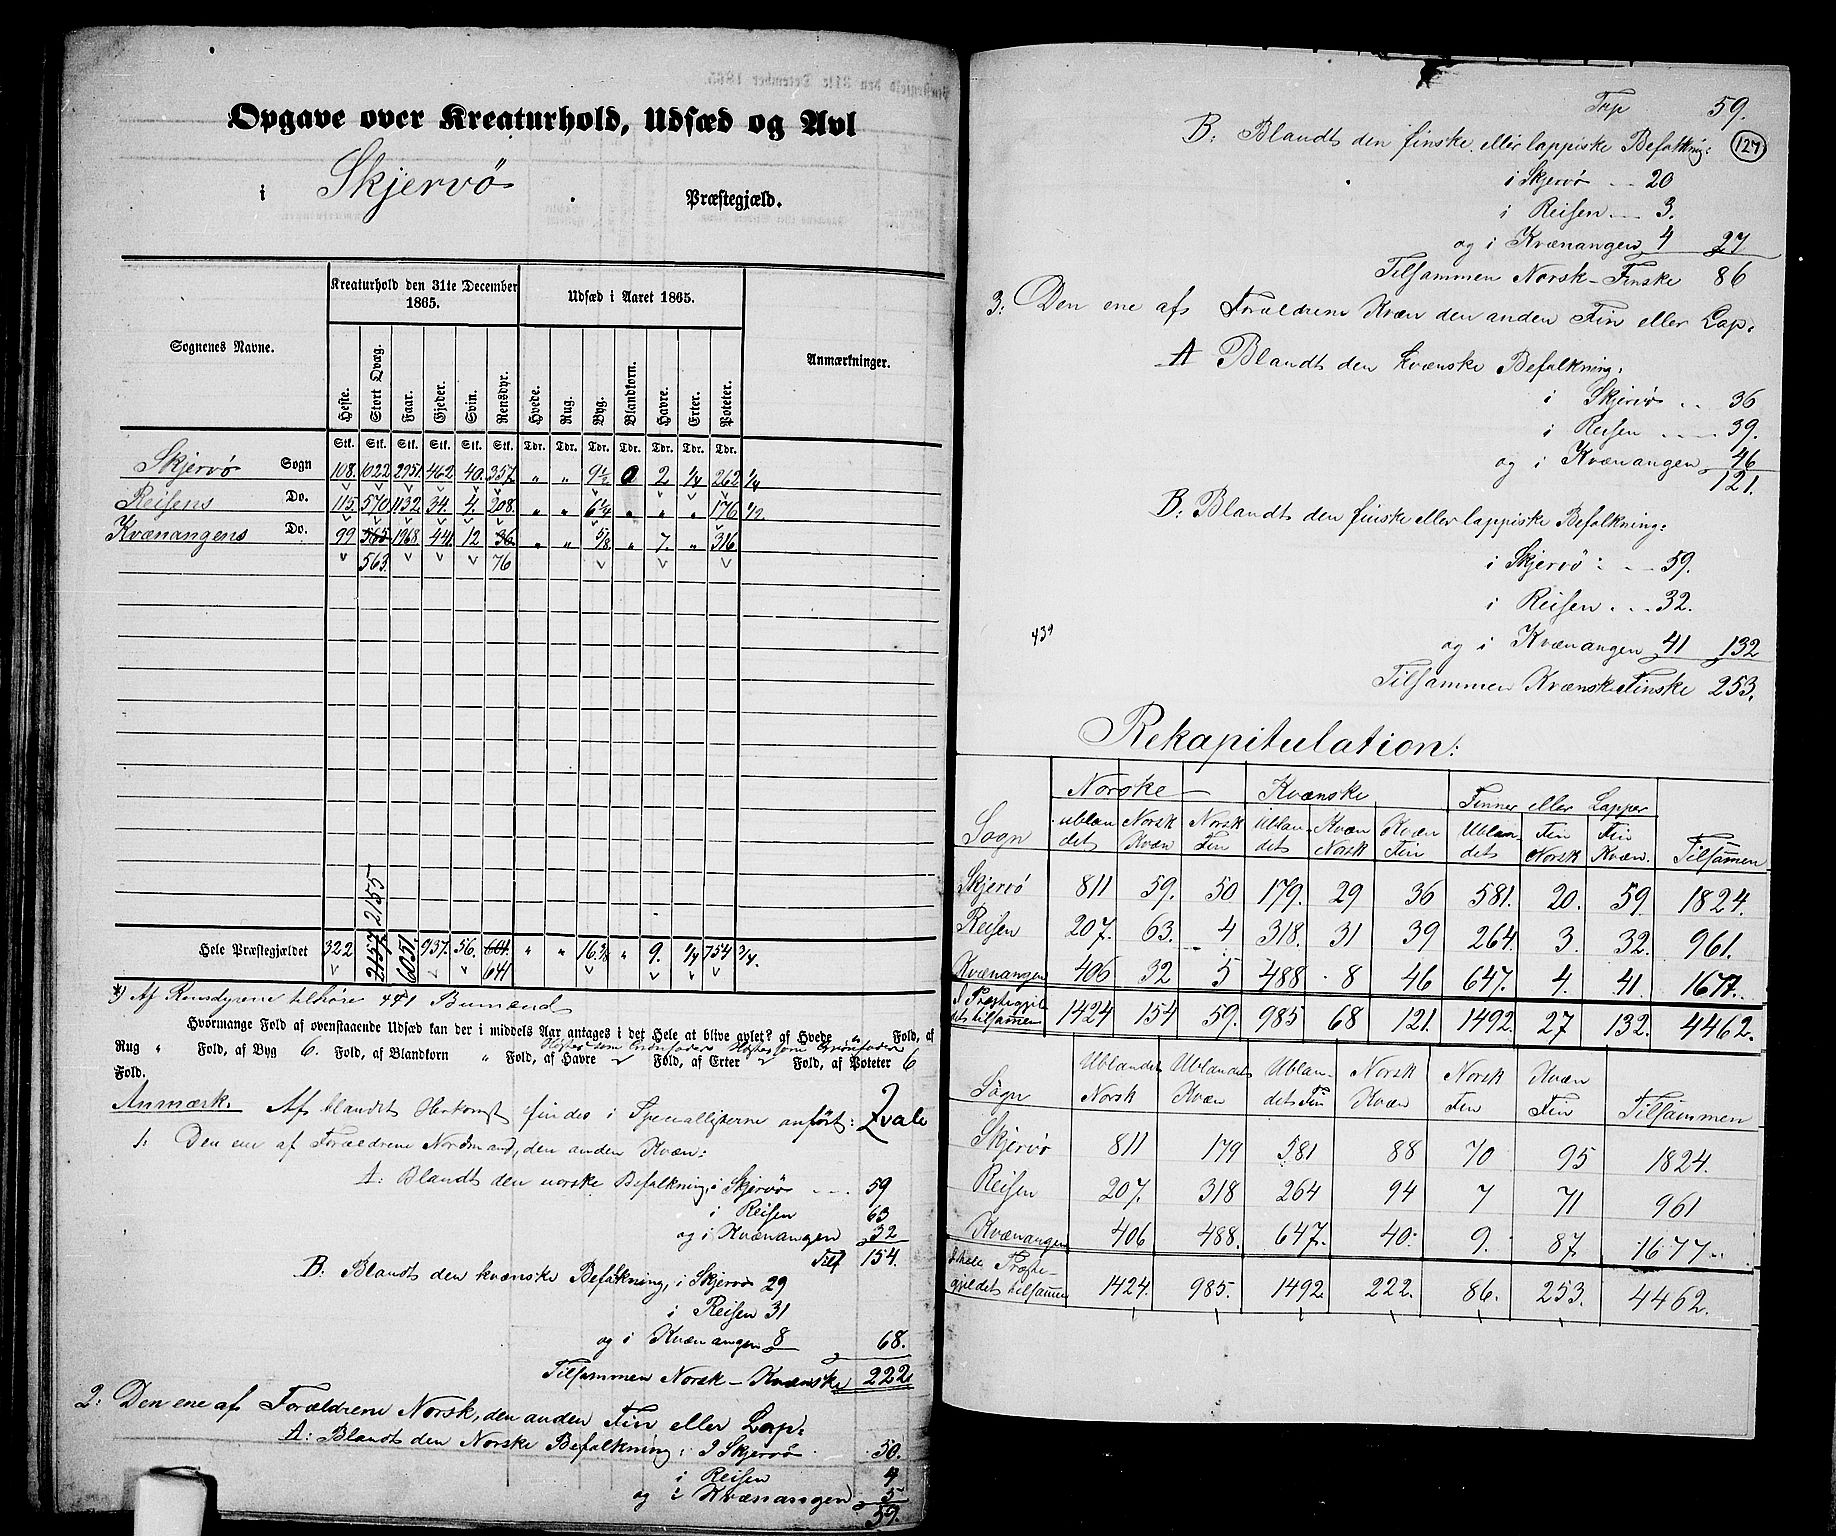 Opgave over Kreaturhold, Udsæd og Avl
i Skjervö Præstegjæld.
Sognenes Navne. Kreaturhold den 31te December 1865. Udsæd i Aaret 1865. Anmærkninger.
Heste. Stort Qvæg. Faar. Gjeder. Svin. Rensdyr. Hvede. Rug. Byg. Blandkorn. Havre. Erter. Poteter.
Stk. Stk. Stk. Stk. Stk. Stk. Tdr. Tdr. Tdr. Tdr. Tdr. Tdr. Tdr.
Skjervö Sogn 108. 1022 2951 462 40. 357 " " 9½ 0 2 ¼ 262 ¼
Reisens Do. 115. 570 1132 34. 4. 208. " " 6¼ " " " 176 ½
Kvænangens Do. 99 565 1968 441. 12 36 " " ⅝ " 7. " 316
563. 76
Hele Præstegjældet 322 2157 2155 6051. 937. 56. 604. " " 16⅜ " 9. ¼ 754 ¾.
641
*) Af Rensdyrene tilhøre 441 Bumænd
Hvormange Fold af ovenstaaende Udsæd kan der i middels Aar antages i det Hele at blive avlet? af Hvede " Fold, af
Rug " Fold, af Byg 6. Fold, af Blandkorn " Fold, af Havre Fold, af Erter Fold, af Poteter 6
Fold.
Anmærk. Af blandet Herkomst findes i Speciallisterne anført:
1: Den ene af Forældrene Nordmand, den anden Kvæn:
A: Blandt den norske Befolkning, i Skjervö 59
i Reisen 63
og i Kvænangen 32
Tils 154.
B. Blandt den kvænske Befolkning, i Skjervö 29
i Reisen 31
og i Kvænangen 8 68.
Tilsammen Norsk-Kvænske 222
2: Den ene af Forældrene Norsk, den anden Fin eller Lap:
A: Blandt den Norske Befolkning: I Skjervö 50.
i Reisen 4
og i Kvænangen 5
59.
Trp 59.
127
B: Blandt den finske eller lappiske Befolkning:
i Skjervö 20
i Reisen 3.
og i Kvænangen 4 27
Tilsammen Norsk-Finske 86
3: Den ene af Forældrene Kvæn den anden Fin eller Lap:
A Blandt den kvænske Befolkning:
i Skjervö 36
i Reisen 39.
og i Kvænangen 46
121.
B: Blandt den finske eller lappiske Befolkning:
i Skjervö: 59.
i Reisen 32.
439
og i Kvænangen 41 132
Tilsammen Kvænsk Finske 253.
Rekapitulation:
Sogn Norske Kvænske Finner eller Lapper Tilsamen
ublandets Norsk Kvæn Norsk Fin Ublandets Kvæn Norsk Kvæn Fin Ublandets Fin Norsk Fin Kvæn.
Skjervö 811 59. 50 179. 29 36 581. 20. 59. 1824.
Reisen 207. 63. 4 318. 31 39 264. 3. 32. 961.
Kvænangen 406 32 5 488 8 46 647. 4. 41. 1677.
I Præstegjeldets tilsamen 1424 154 59. 985 68 121. 1492. 27 132. 4462.
Sogn Ublandets Norsk Ublandets Kvæn Ublandets Fin Norsk Kvæn Norsk Fin Kvæn Fin Tilsammen
Skjervö 811 179 581 88 70 95 1824.
Reisen 207. 318 264 94 7 71 961
Kvænangen 406 488. 647. 40. 9. 87 1677.
I hele Præstegjeldets tilsamen 1424. 985. 1492 222. 86. 253. 4462.